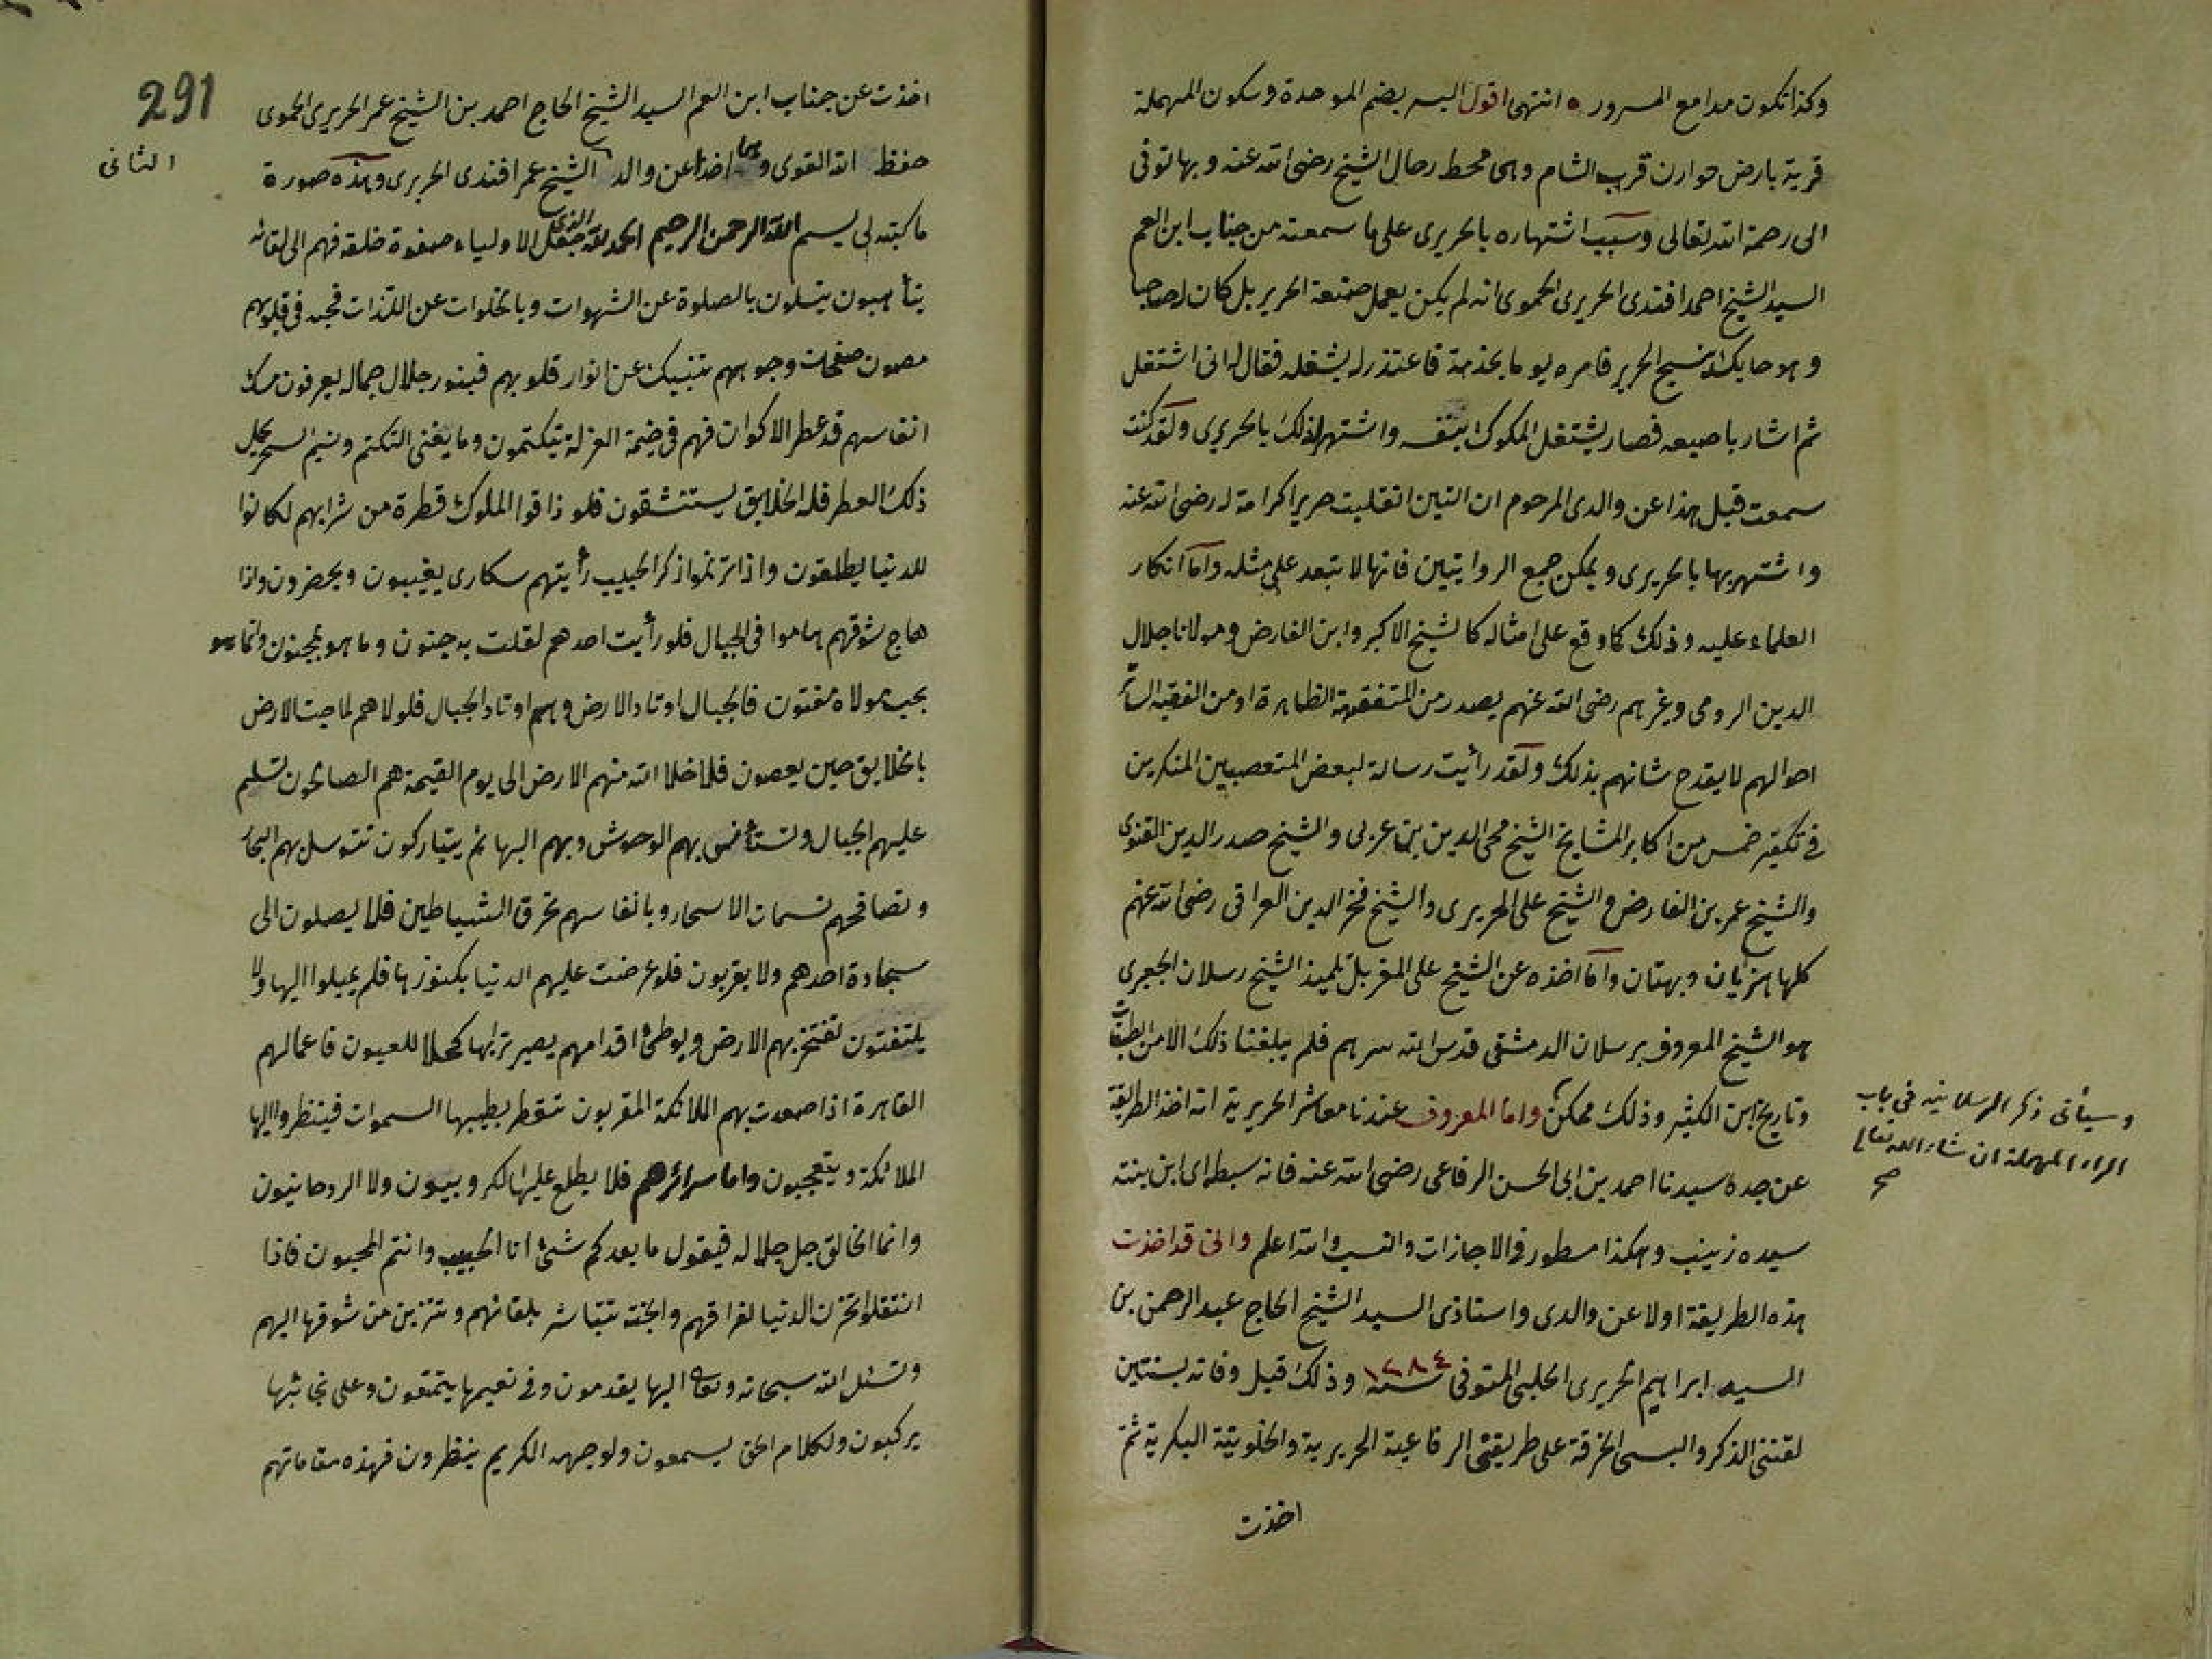 وكذا تكون مدامع المسرور ه انتهى اقول البسر بضم الموحدة وسكون المهملة
قرية بارض حوارن قرب الشام وهى محط رحال الشيخ رضى الله عنه وبها توفى
الى رحمة الله تعالى وسبب اشتهاره بالحريرى على ما سمعته من جناب ابن العم
السيد الشيخ احمد افندى الحريرى الحموى انه لم يكن يعمل صنعة الحرير بل كان له صاحبا
وهو حايك لنسيج الحرير فامره يوما بخدمة فاعتذر له بشغله فقال له انى اشتغل
ثم اشار باصبعه فصار يشتغل المكوك بنفسه واشتهر لذلك بالحريرى ولقد كنت
سمعت قبل هذا عن والدى المرحوم ان التبن انقلبت حريرا كرامة له رضى الله عنه
واشتهر بها بالحريرى ويمكن جمع الروايتين فانها لا تبعد على مثله واما انكار
العلماء عليه وذلك كما وقع على امثاله كالشيخ الاكبر وابن الفارض ومولانا جلال
الدين الرومى وغيرهم رضى الله عنهم يصدر من المتفقهة الظاهرة او من الفقيه الساتر
احوالهم لا يقدح شانهم بذلك ولقد رأيت رسالة لبعض المتعصبين المنكرين
فى تكفير خمس من اكابر المشايخ الشيخ محى الدين بن عربى والشيخ صدر الدين القنوى
والشيخ عمر بن الفارض والشيخ على الحريرى والشيخ فخر الدين العراقى رضى الله عنهم
كلها هزيان وبهتان واما اخذه عن الشيخ على المغربل تلميذ الشيخ رسلان الجعبرى
هو الشيخ المعروف برسلان الدمشقى قدس الله سرهم فلم يبلغنا ذلك الا من الطبقات
وتاريخ ابن الكثير وذلك ممكن واما المعروف عندنا معاشر الحريرية انه اخذ الطريقة
عن جده سيدنا احمد بن ابى الحسن الرفاعى رضى الله عنه فانه سبطه اى ابن بنته
سيده زينب وهكذا مسطور فى الاجازات والنسب والله اعلم وانى قد اخذت
هذه الطريقة اولا عن والدى واستاذى السيد الشيخ الحاج عبد الرحمن بن
السيد ابراهيم الحريرى الحلبى المتوفى سنة ١٢٨٤ وذلك قبل وفاته بسنتين
لقننى الذكر والبسى الخرقة على طريقتى الرفاعية الحريرية والخلوتية البكرية ثم
اخذت
وسيأتى ذكر الرسلانيه فى باب
الراء المهملة ان شاء الله تعالى
صح
291
الثانى
اخذت عن جناب ابن العم السيد الشيخ الحاج احمد بن الشيخ عمر الحريرى الحموى
حفظه الله القوى وهما اخذا عن والده الشيخ عمر افندى الحريرى وهذه صورة
ما كتبه لى بسم الله الرحمن الرحيم الحمد لله الذى جعل الاولياء صفوة خلقه فهم الى لقائه
يتأهبون يتسلون بالصلوة عن الشهوات وبالخلوات عن اللذات فحبه فى قلوبهم
مصون صفحات وجوههم تنبيك عن انوار قلوبهم فبنور جلال جماله يعرفون مسك
انفاسهم قد عطر الاكوان فهم فى ضيمة العزلة يتكتمون وما يغنى التكتم ونسيم السحر يحمل
ذلك العطر فله الخلايق يستنشقون فلو ذاقوا الملوك قطرة من شرابهم لكانوا
للدنيا يطلقون واذا ترنموا ذكر الحبيب رأيتهم سكارى يغيبون ويحضرون واذا
هاج شوقهم هاموا فى الجبال فلو رأيت احدهم لقلت به جنون وما هو بمجنون وانما هو
بحب مولاه مفتون فالجبال اوتاد الارض وهم اوتاد الجبال فلولاهم لماجت الارض
بالخلايق حين يعصون فلا اخلا الله منهم الارض الى يوم القيمة هم الصالحون تسلم
عليهم الجبال وتستأنس بهم الوحوش وبهم البهائم يتباركون تتوسل بهم البحار
وتصافحهم نسمات الاسحار وبانفاسهم تحرق الشياطين فلا يصلون الى
سجادة احدهم ولا يقربون فلو عرضت عليهم الدنيا بكنوزها فلم يميلوا اليها ولا
يلتفتون تفتخر بهم الارض وبوطئ اقدامهم يصير ترابها كحلا للعيون فاعمالهم
الفاهرة اذا صعدت بهم الملائكة المقربون تتعطر بطيبها السموات فينظروا اليها
الملائكة ويتعجبون واما سرائرهم فلا يطلع عليها لكروبيون ولا الروحانيون
وانما الخالق جل جلاله فيقول ما بعدكم شئ انا الحبيب وانتم المحبون فاذا
انتقلوا تحزن الدنيا لفراقهم والجنة تتباشر بلقائهم وتتزين من شوقها اليهم
وتسئل الله سبحانه وتعالى اليها يقدمون وفى نعيمها يتمتعون وعلى نجائبها
يركبون ولكلام الحق يسمعون ولوجهه الكريم ينظرون فهذه مقاماتهم